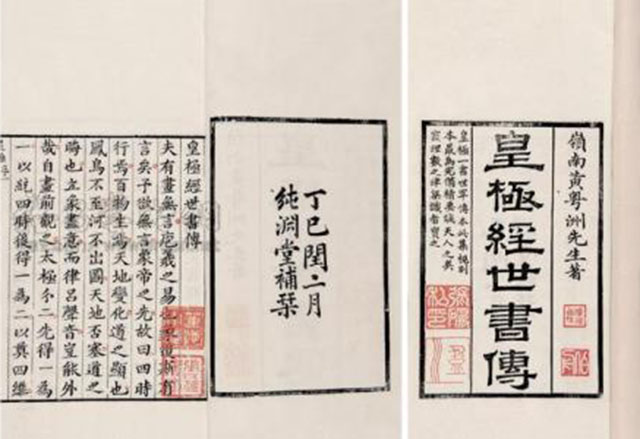 嶺南黃粵洲先生著
皇極經世書傳
皇極一書世罕傳本此集
本最為完備精要誠天人之奥
理數之津筏識者寶之
丁巳閏二月
純淵堂補栞
皇極經世書傳
夫有畫無言庖羲之易也斯有
言矣予欲無言象帝之先故曰四時
行焉百物生焉天地變化道之顯也
鳳鳥不至河不出圖天地否塞道之
晦也立象盡意而律呂聲音豈能外
哉自畫前觀之太極分二先得一為
一以統四時復得一為二以奠四維